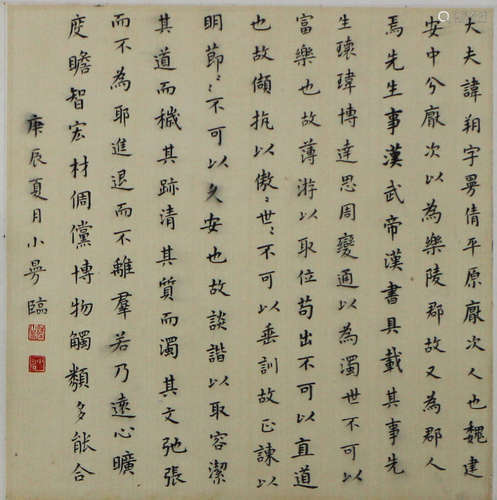 大夫諱朔字曼倩平原厭次人也魏建
安中分厭次以為樂陵郡故又為郡人
焉先生事漢武帝漢書具載其事先
生瓌瑋博達思周變通以為濁世不可以
富樂也故薄游以取位苟出不可以直道
也故傾抗以傲〻世〻不可以垂訓故正諫以
明節〻不可以久安也故談諧以取容潔
其道而穢其跡清其質而濁其文弛張
而不為耶進退而不離羣若乃遠心曠
度瞻智宏材倜儻博物觸類多能合
庚辰夏月小曼臨